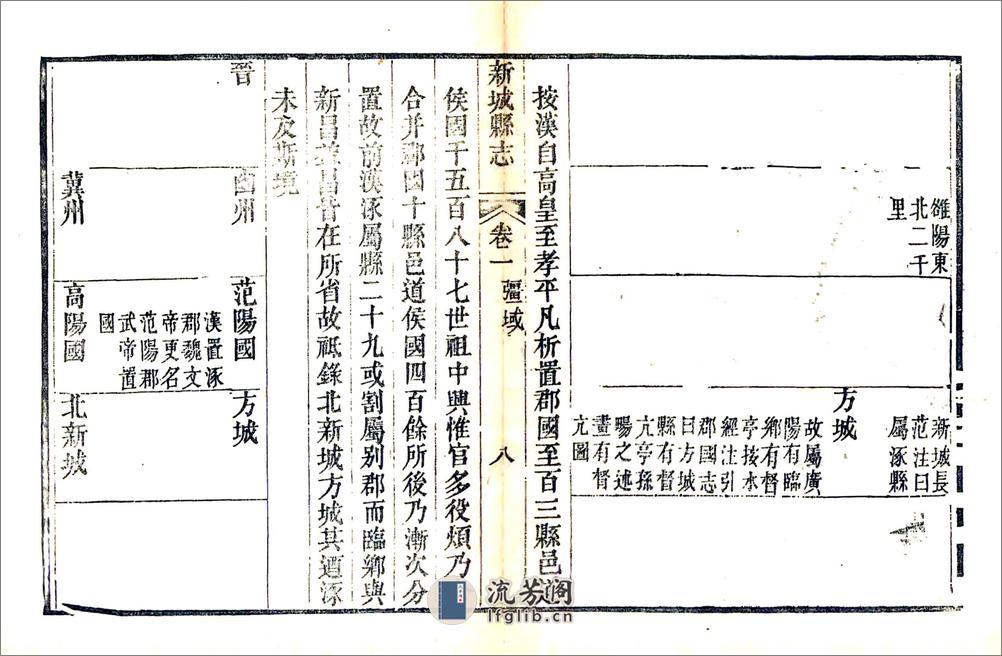 雒陽東
北二千
里
新城長
范注曰
屬涿縣
方城
故屬廣
陽有臨
鄉有督
亭按水
經注引
郡國志
曰方城
縣有督
亢亭孫
暢之述
畫有督
亢圖
按漢自高皇至孝平凡析置郡國至百三縣邑
新城縣志
卷一
疆域
八
侯國千五百八十七世祖中興惟官多役煩乃
合并郡國十縣邑道侯國四百餘所後乃漸次分
置故前漢涿屬縣二十九或割屬别郡而臨鄉與
新昌 昌皆在所省故祗錄北新城方城其遒涿
未及斯境
晉
幽州
范陽國
漢置涿
郡魏文
帝更名
范陽郡
武帝置
國
方城
冀州
高陽國
北新城
流芳阁
lfglib.cn